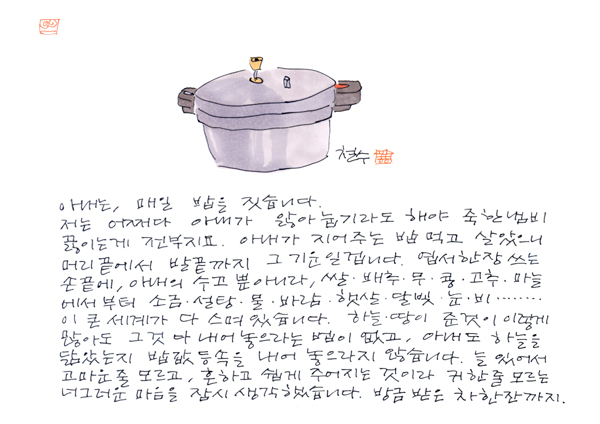 철수
아내는, 매일 밥을 짓습니다.
저는 어쩌다 아내가 앓아 눕기라도 해야 죽한냄비
끓이는게 전부지요. 아내가 지어주는 밥 먹고 살았으니
머리끝에서 발끝까지 그 기운일겁니다. 엽서한장 쓰는
손끝에, 아내의 수고 뿐아니라, 쌀·배추·무·콩·고추·마늘
에서부터 소금·설탕·물·바람·햇살·달빛·눈·비········
이 큰 세계가 다 스며있습니다. 하늘·땅이 준것이 이렇게
많아도 그것 다 내어놓으라는 법이 없고, 아내도 하늘을
닮았는지 밥값 등속을 내어 놓으라지 않습니다. 늘 있어서
고마운줄 모르고, 흔하고 쉽게 주어지는 것이라 귀한줄 모르는
너그러운 마음을 잠시 생각했습니다. 방금 받은 차한잔까지.